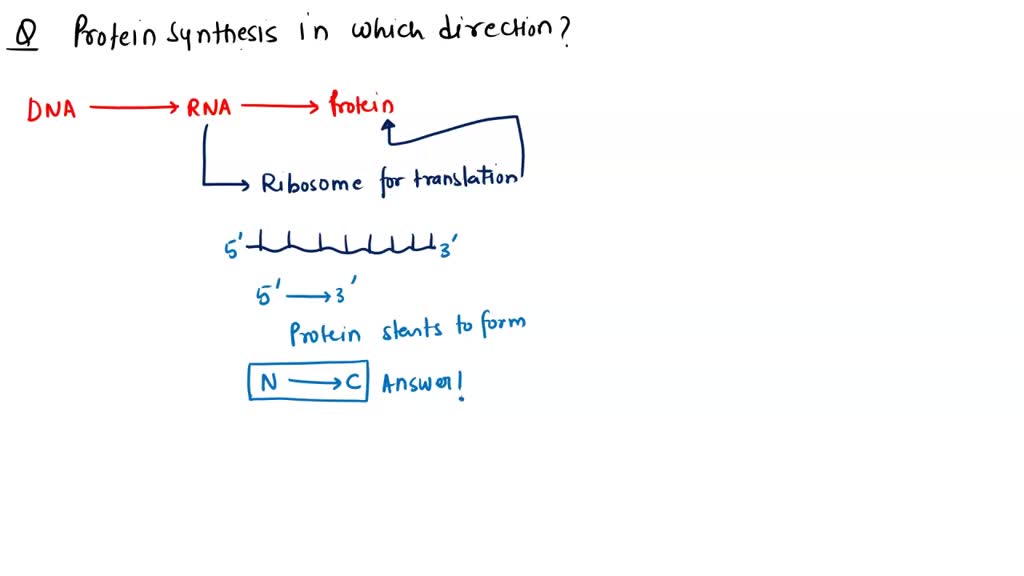 Q Protein synthesis in which direction?
DNA → RNA → Protein
Ribosome for translation
5' 3'
5' → 3'
Protein starts to form
N → C Answer!